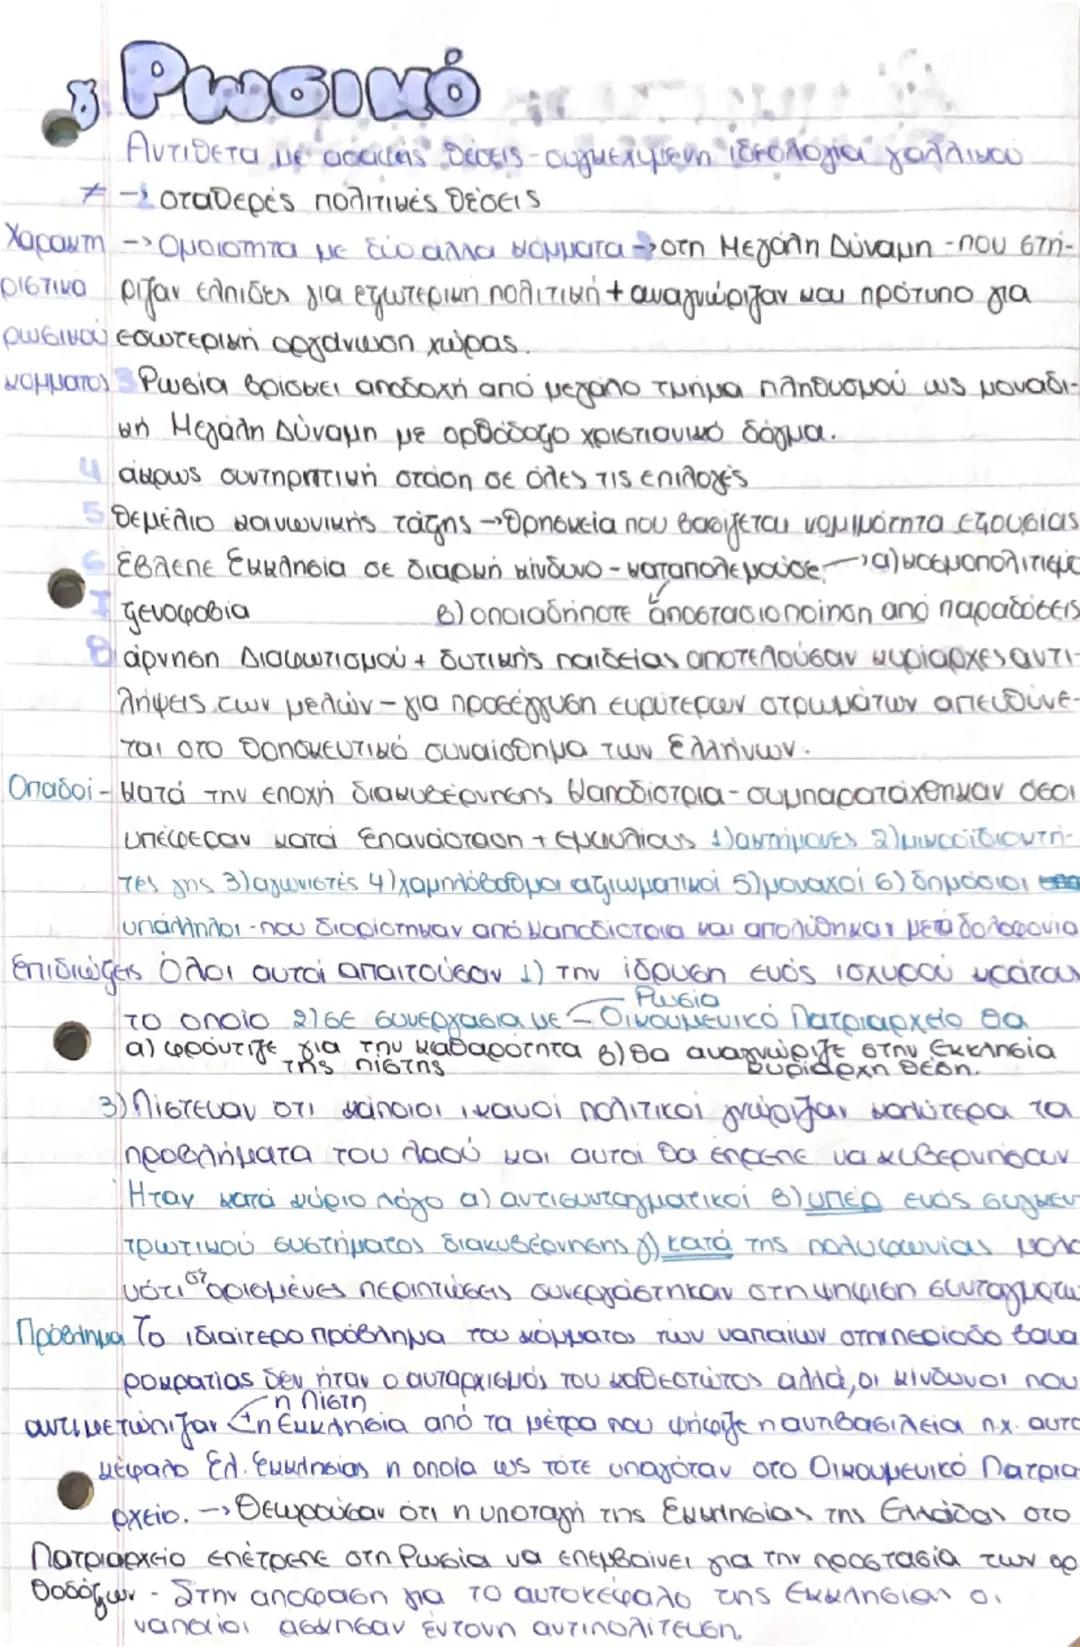 γ Ρωσικό
Αντίθετα με ασαφείς θέσεις - συγκεχυμένη ιδεολογία γαλλικού
≠ → σταθερές πολιτικές θέσεις
Χαρακτη → Ομοιότητα με δύο άλλα κόμματα → στη Μεγάλη Δύναμη - που στή-
ριστικά ριζαν ελπίδες για εξωτερική πολιτική + αναγνώριζαν και πρότυπο για
ρωσικού εσωτερική οργάνωση χώρας.
κόμματος 3 Ρωσία βρίσκει αποδοχή από μεγάλο τμήμα πληθυσμού ως μοναδι-
κή Μεγάλη Δύναμη με ορθόδοξο χριστιανικό δόγμα.
4 άκρως συντηρητική στάση σε όλες τις επιλογές
5 θεμέλιο κοινωνικής τάξης → θρησκεία που βασίζεται νομιμότητα εξουσίας
6 Έβλεπε Εκκλησία σε διαρκή κίνδυνο - καταπολεμούσε → α) κοσμοπολιτισμό
7 ξενοφοβία β) οποιαδήποτε αποστασιοποίηση από παραδόσεις
8 άρνηση Διαφωτισμού + δυτικής παιδείας αποτελούσαν κυρίαρχες αντι-
λήψεις των μελών - για προσέγγυση ευρύτερων στρωμάτων απευθύνε-
ται στο θρησκευτικό συναίσθημα των Ελλήνων.
Οπαδοί - Κατά την εποχή διακυβέρνησης Καποδίστρια - συμπαρατάχθηκαν όσοι
υπέφεραν κατά Επανάσταση + εμφυλίους 1) ακτήμονες 2) μικροϊδιοκτή-
τες γης 3) αγωνιστές 4) χαμηλόβαθμοι αξιωματικοί 5) μοναχοί 6) δημόσιοι
υπάλληλοι - που διορίστηκαν από Καποδίστρια και απολύθηκαν μετά δολοφονία
Επιδιώξεις Όλοι αυτοί απαιτούσαν 1) την ίδρυση ενός ισχυρού κράτους
Ρωσία
το οποίο 2) σε συνεργασία με - Οικουμενικό Πατριαρχείο θα
α) φρόντιζε για την καθαρότητα β) θα αναγνώριζε στην Εκκλησία
της πίστης κυρίαρχη θέση.
3) Πίστευαν ότι κάποιοι ικανοί πολιτικοί γνώριζαν καλύτερα τα
προβλήματα του λαού και αυτοί θα έπρεπε να κυβερνήσουν
Ήταν κατά κύριο λόγο α) αντισυνταγματικοί β) υπέρ ενός συγκεν
τρωτικού συστήματος διακυβέρνησης γ) κατά της πολυφωνίας μολο
νότι σε ορισμένες περιπτώσεις συνεργάστηκαν στη ψήφιση συνταγμάτω
Πρόβλημα Το ιδιαίτερο πρόβλημα του κόμματος των ναπαίων στην περίοδο βαυα
ροκρατίας δεν ήταν ο αυταρχισμός του καθεστώτος αλλά, οι κίνδυνοι που
η Πίστη
αντιμετώπιζαν + η Εκκλησία από τα μέτρα που ψήφιζε η αντιβασιλεία π.χ. αυτο
κέφαλο Ελ. Εκκλησίας η οποία ως τότε υπαγόταν στο Οικουμενικό Πατρια
ρχείο. → Θεωρούσαν ότι η υποταγή της Εκκλησίας της Ελλάδας στο
Πατριαρχείο επέτρεπε στη Ρωσία να επεμβαίνει για την προστασία των ορ
θοδόξων - Στην απόφαση για το αυτοκέφαλο της Εκκλησίας οι
ναπαίοι άσκησαν έντονη αντιπολίτευση.